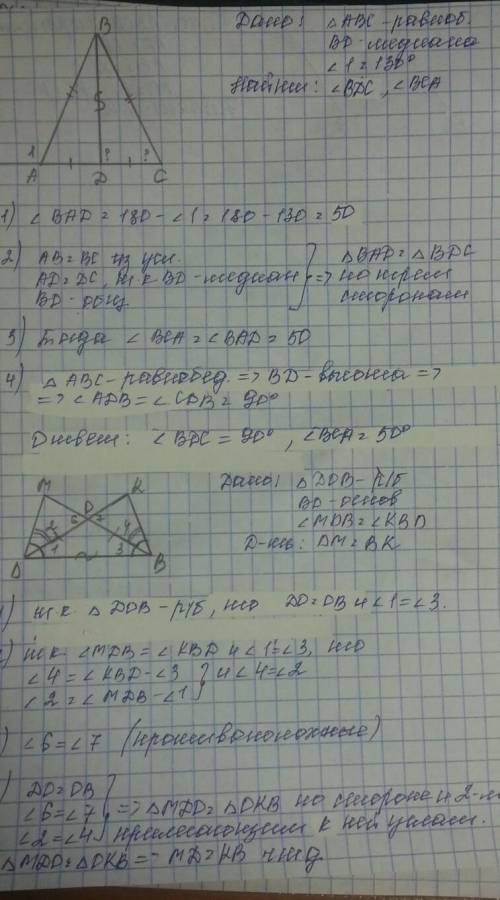 Дано: △ABC - равноб.
BD - медиана
∠1 = 130°
Найти: ∠BDC, ∠BCA
B
1
A
?
?
D
C
1) ∠BAD = 180 - ∠1 = 180 - 130 = 50
2) AB = BC из усл.
AD = DC, т.к BD - медиан
BD - общ
} => △BAD = △BDC
по трем
сторонам
3) Тогда ∠BCA = ∠BAD = 50
4) △ABC - равнобед. => BD - высота =>
=> ∠ADB = ∠CDB = 90°
Ответ: ∠BDC = 90°, ∠BCA = 50°
Дано: △DOB - р/б
BD - основ
∠MDB = ∠KBD
Д-ть: DM = BK
M
K
O
6
7
2
4
1
3
D
B
) т.к. △DOB - р/б, то DO = OB и ∠1 = ∠3.
) т.к. ∠MDB = ∠KBD и ∠1 = ∠3, то
∠4 = ∠KBD - ∠3
∠2 = ∠MDB - ∠1
} и ∠4 = ∠2
) ∠6 = ∠7 (противоположные)
) DO = OB
∠6 = ∠7
∠2 = ∠4
} => △MDO = △OKB по стороне и 2-м
прилегающим к ней углам.
△MDO = △OKB => MD = KB чтд.